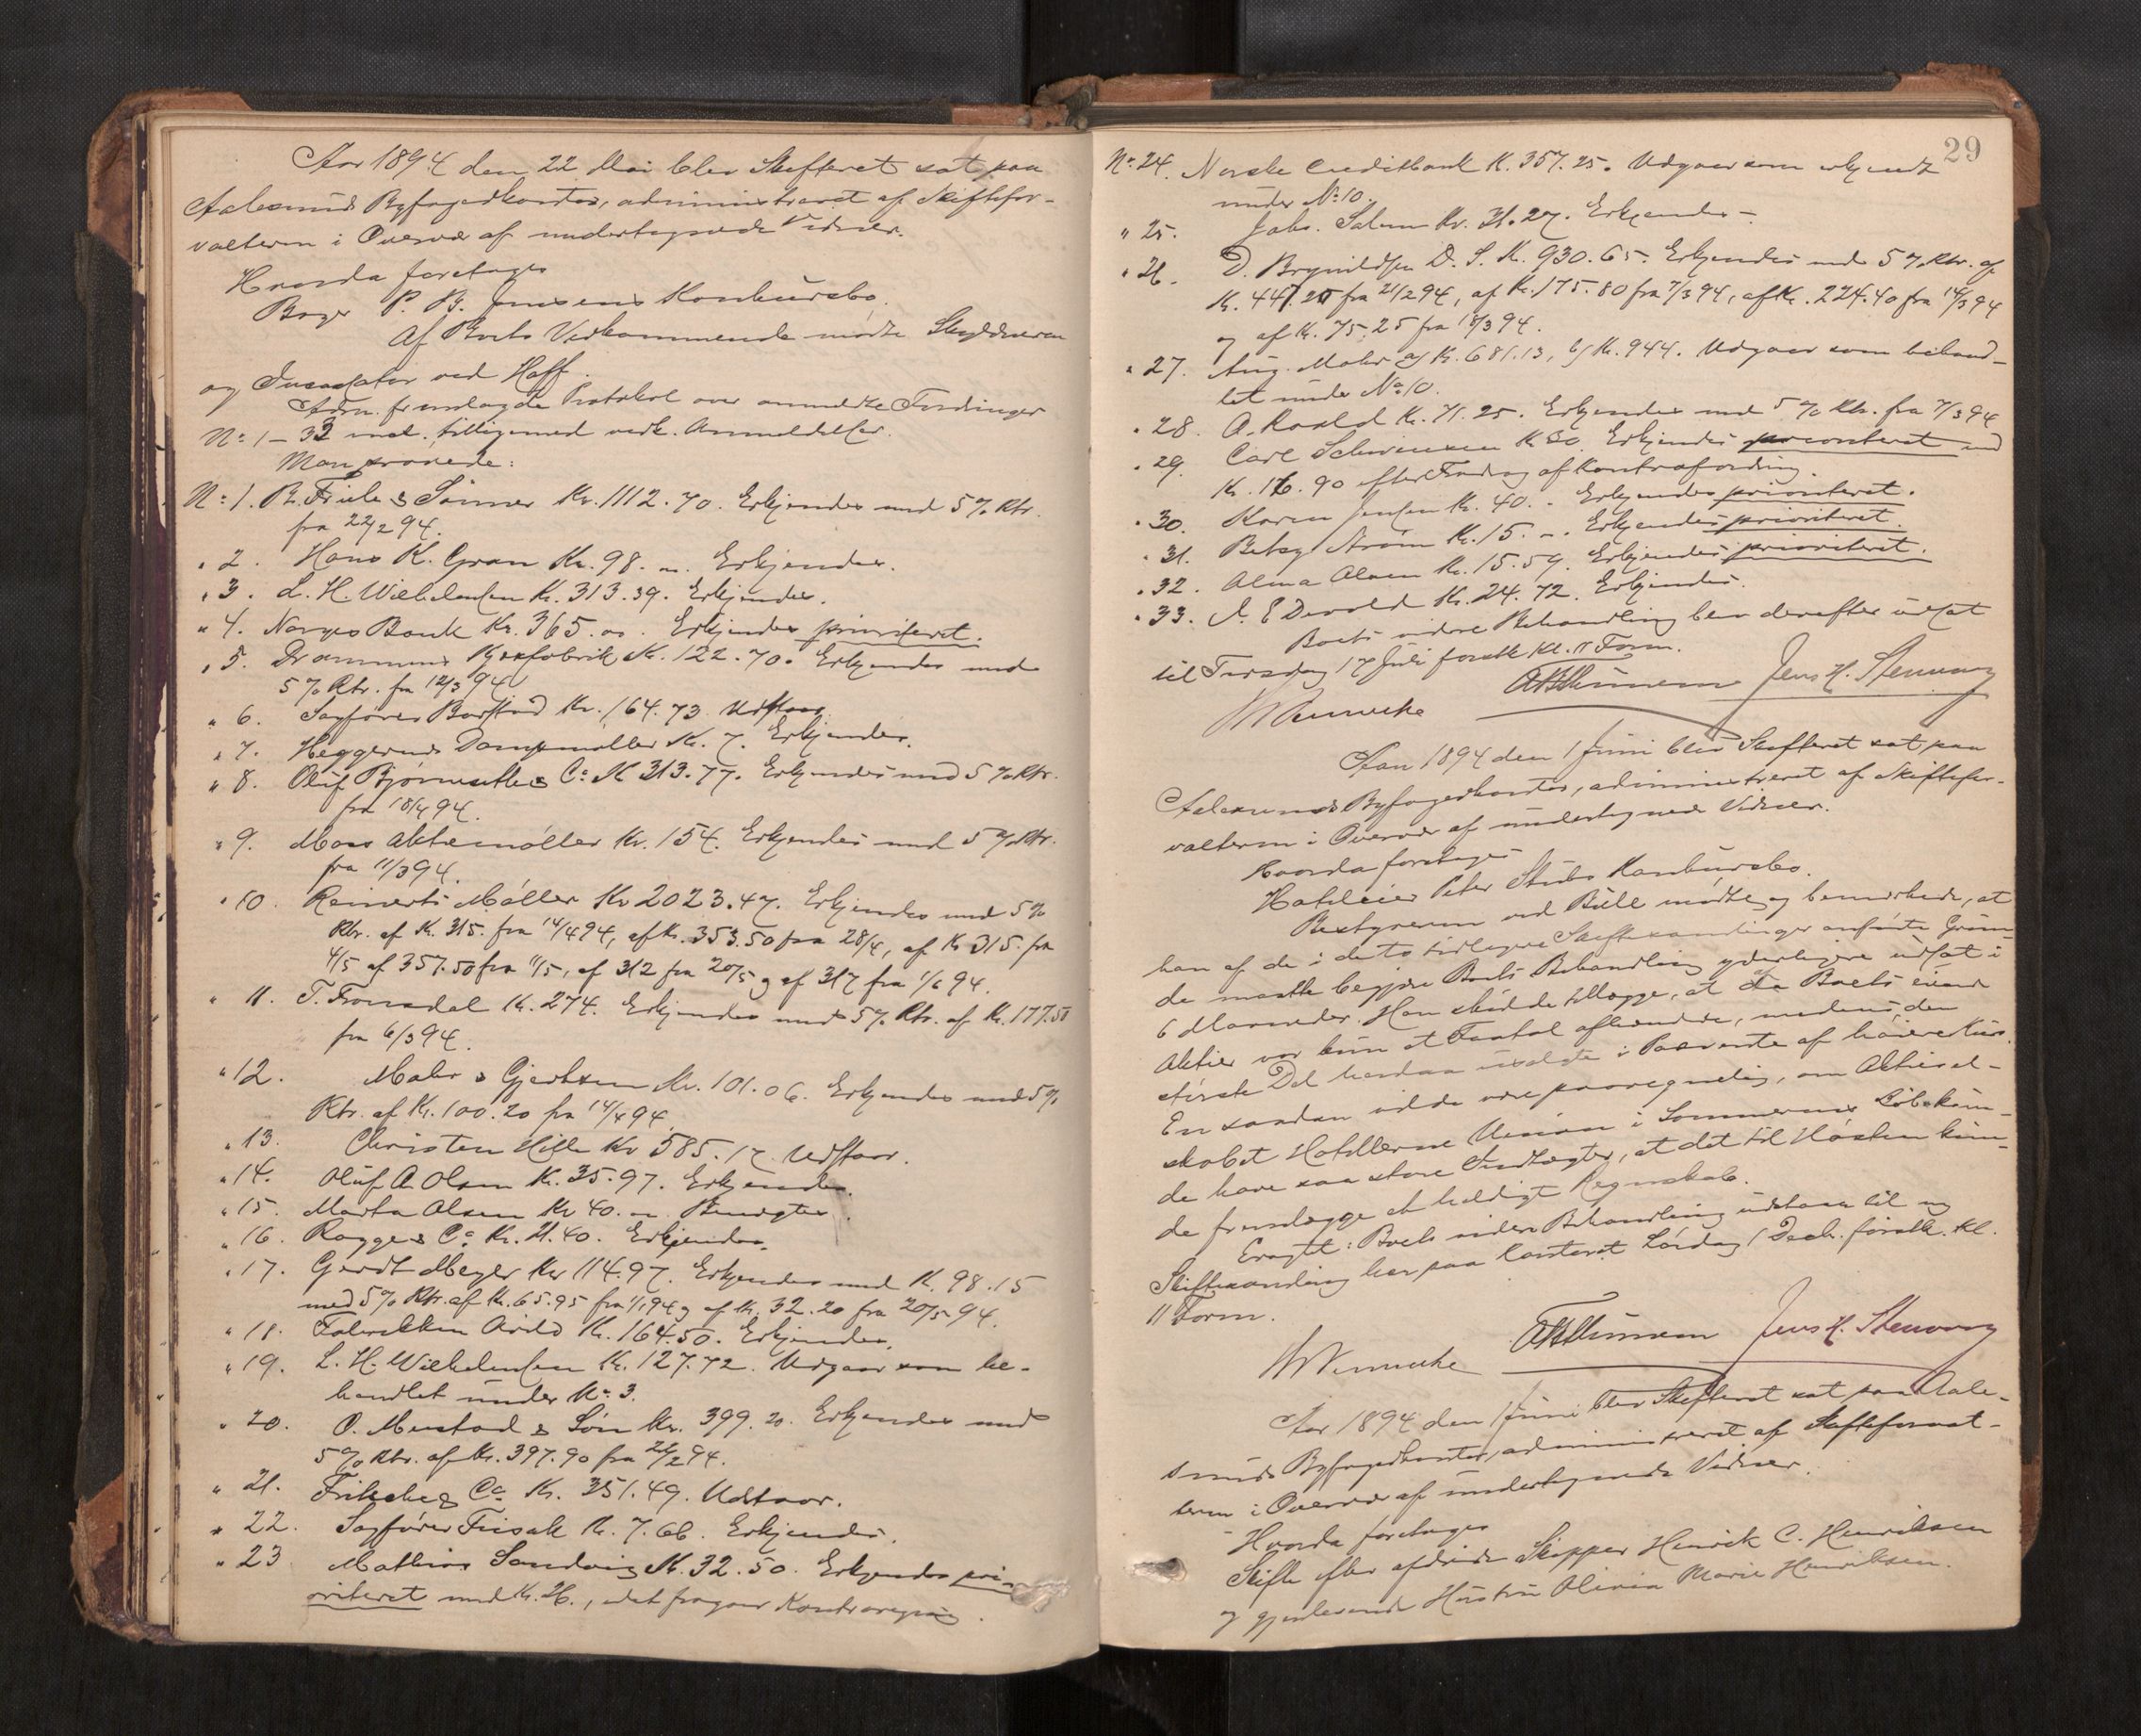 Aar 1894 den 22 Mai blev Skifteret sat paa
Aalesunds Byfogedkontor, administreret af Skiftefor-
valteren i Overvær af undertegnede Vidner.
Hvorda foretoges
Bager P. B. Jensens Konkursbo.
Af Boets Vedkommende mødte Skyldneren
og Incassator ved Hoff.
Adm. fremlagde Protokol over anmeldte Fordringer
No 1 – 33 incl. tilligemed vedk. Anmeldelser.
Man prøvede:
No 1. B. Friele & Sønner Kr. 1112.70. Erkjendes med 5 % Rtr.
fra 22/2 94.
" 2. Hans K. Gran Kr. 98. "". Erkjendes.
" 3. L. H. Wilhelmsen K. 313.39. Erkjendes.
" 4. Norges Bank Kr. 365. "". Erkjendes prioriteret.
" 5. Drammens Kjexfabrik K. 122.70. Erkjendes med
5 % Rtr. fra 12/3 94
" 6. Sagfører Kr. 164.73 Udstaar
" 7. Heggernes Dampmøller K. 7. Erkjendes.
" 8. Oluf Bjørneseth & Co K 313.77. Erkjendes med 5 % Rtr.
fra 18/4 94.
" 9. Moss Aktiemøller Kr. 154. Erkjendes med 5 % Rtr.
fra 11/3 94.
" 10. Reinerts Møller Kr 2023.47. Erkjendes med 5 %
Rtr. af K. 315. fra 14/4 94, af Kr. 353.50 fra 28/4, af Kr 315. fra
4/5 af 357.50 fra 11/5, af 312 fra 20/5 og af 317 fra 1/6 94.
" 11. T. Fronsdal K. 274. Erkjendes med 5 % Rtr. af Kr. 177.50
fra 6/3 94.
" 12. Mohr & Gjertsen Kr. 101.06. Erkjendes med 5 %
Rtr. af Kr. 100.20 fra 14/4 94
" 13. Christen Hille Kr 585.17 Udstaar.
" 14. Oluf A. Olsen K. 35.97. Erkjendes.
" 15. Marta Olsen Kr 40. "" Benegtes.
" 16. Rogge & Co Kr. 21.40. Erkjendes.
" 17. Gerdt Meyer Kr 114.97. Erkjendes med K. 98.15
med 5 % Rtr. af Kr. 65.95 fra 1/1 94 og af Kr. 32.20 fra 20/5 94.
" 18. Fabrikken Arild K. 164.50. Erkjendes.
" 19. L. H. Wilhelmsen K. 127.72. Udgaar som be-
handlet under No 3.
" 20. O. Mustad & Søn Kr. 399.20. Erkjendes med
5 % Rtr. af Kr. 397.90 fra 21/2 94.
" 21. & Co Kr. 351.49. Udstaar.
" 22. Sagfører Kr. 7.66. Erkjendes.
" 23 Mathias Sandvig K. 32.50. Erkjendes pri-
oriteret med Kr. 26., idet fragaar Kontraregning.
29
No 24. Norske Creditbank K. 357.25. Udgaar som erkjendt
under No 10.
" 25. Johs. Salem Kr. 31.27. Erkjendes –
" 26. D. Brynildsen D. S. K. 930.65. Erkjendes med 5 % Rtr. af
K. 447.20 fra 21/2 94, af Kr. 175.80 fra 7/3 94, af Kr. 224.40 fra 14/3 94
og af Kr. 75.25 fra 18/3 94.
" 27. Aug. Mohr a) K. 681.13, b) Kr. 944. Udgaar som behand-
let under No 10.
" 28. A. Roald K. 71.25. Erkjendes med 5 % Rtr. fra 7/3 94
" 29. Carl Schwensen K 30 Erkjendes prioriteret med
Kr. 16.90 efter Fradrag af Kontrafordring.
" 30. Karen Jensen Kr. 40. – Erkjendes prioriteret.
" 31. Betsy Strøm K. 15. –. Erkjendes prioriteret.
" 32. Alma Olsen K. 15.59. Erkjendes prioriteret.
" 33. A. E Devold Kr. 24.72. Erkjendes.
Boets videre Behandling blev derefter udsat
til Tirsdag 17 Juli førstk Kl. 11 Form.
Jens H. Stenvaag
Aar 1894 den 1 Juni blev Skifteret sat paa
Aalesunds Byfogedkontor, administreret af Skiftefor-
valteren i Overvær af undertegnede Vidner.
Hvorda foretoges
Hoteleier Peter Stubs Konkursbo.
Bestyreren ved Bull mødte og bemærkede, at
han af de i dette tidligere Skiftesamlinger anførte Grun-
de maatte begjære Boets Behandling yderligere udsat i
6 Maaneder. Han skulde tillægge, at af Boets
Aktier var kun et Faatal afhændede, medens den
største Del henlaa usolgte i Paavente af høiere Kurs.
En saadan vilde være paaregnelig, om Aktiesel-
skabet Hotellerne Union i Sommerens Løb kun-
de have saa store Indtægter, at det til Høsten kun-
de fremlægge et heldigt Regnskab.
Eragtet: Boets videre Behandling udstaar til ny
Skiftesamling her paa Kontoret Lørdag 1 Decbr. førstk. Kl.
11 Form.
Jens H. Stenvaag
Aar 1894 den 1 Juni blev Skifteret sat paa Aale-
sunds Byfogedkontor, administreret af Skifteforval-
teren i Overvær af undertegnede Vidner.
Hvorda foretoges
Skifte efter afdøde Skipper Henrik C. Henriksen
og gjenlevende Hustru Olivia Marie Henriksen.